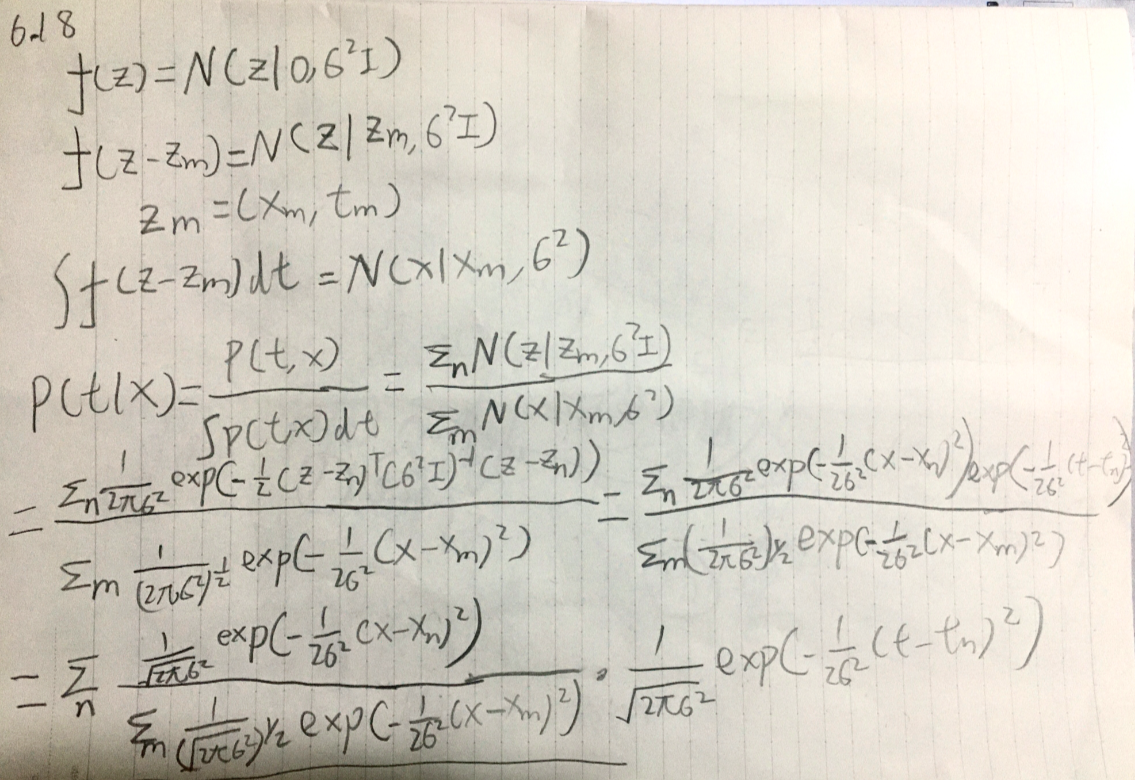 6.18
f(z)=N(z|0,6²I)
f(z-zm)=N(z|zm,6²I)
zm=(xm,tm)
∫f(z-zm)dt=N(x|xm,6²)
p(t|x)=\frac{p(t,x)}{∫p(t,x)dt}=\frac{Σn N(z|zm,6²I)}{Σm N(x|xm,6²)}
=\frac{Σn \frac{1}{2π6²} exp(-\frac{1}{2}(z-zn)^T(6²I)^{-1}(z-zn))}{Σm \frac{1}{(2π6²)^{\frac{1}{2}}} exp(-\frac{1}{26²}(x-xm)²)}=\frac{Σn \frac{1}{2π6²} exp(-\frac{1}{26²}(x-xn)²)exp(-\frac{1}{26²}(t-tn)²)}{Σm(\frac{1}{2π6²})^{1/2} exp(-\frac{1}{26²}(x-xm)²)}
=Σn \frac{\frac{1}{\sqrt{2π6²}} exp(-\frac{1}{26²}(x-xn)²)}{Σm \frac{1}{(\sqrt{2π6²})^{1/2}} exp(-\frac{1}{26²}(x-xm)²)}·\frac{1}{\sqrt{2π6²}} exp(-\frac{1}{26²}(t-tn)²)